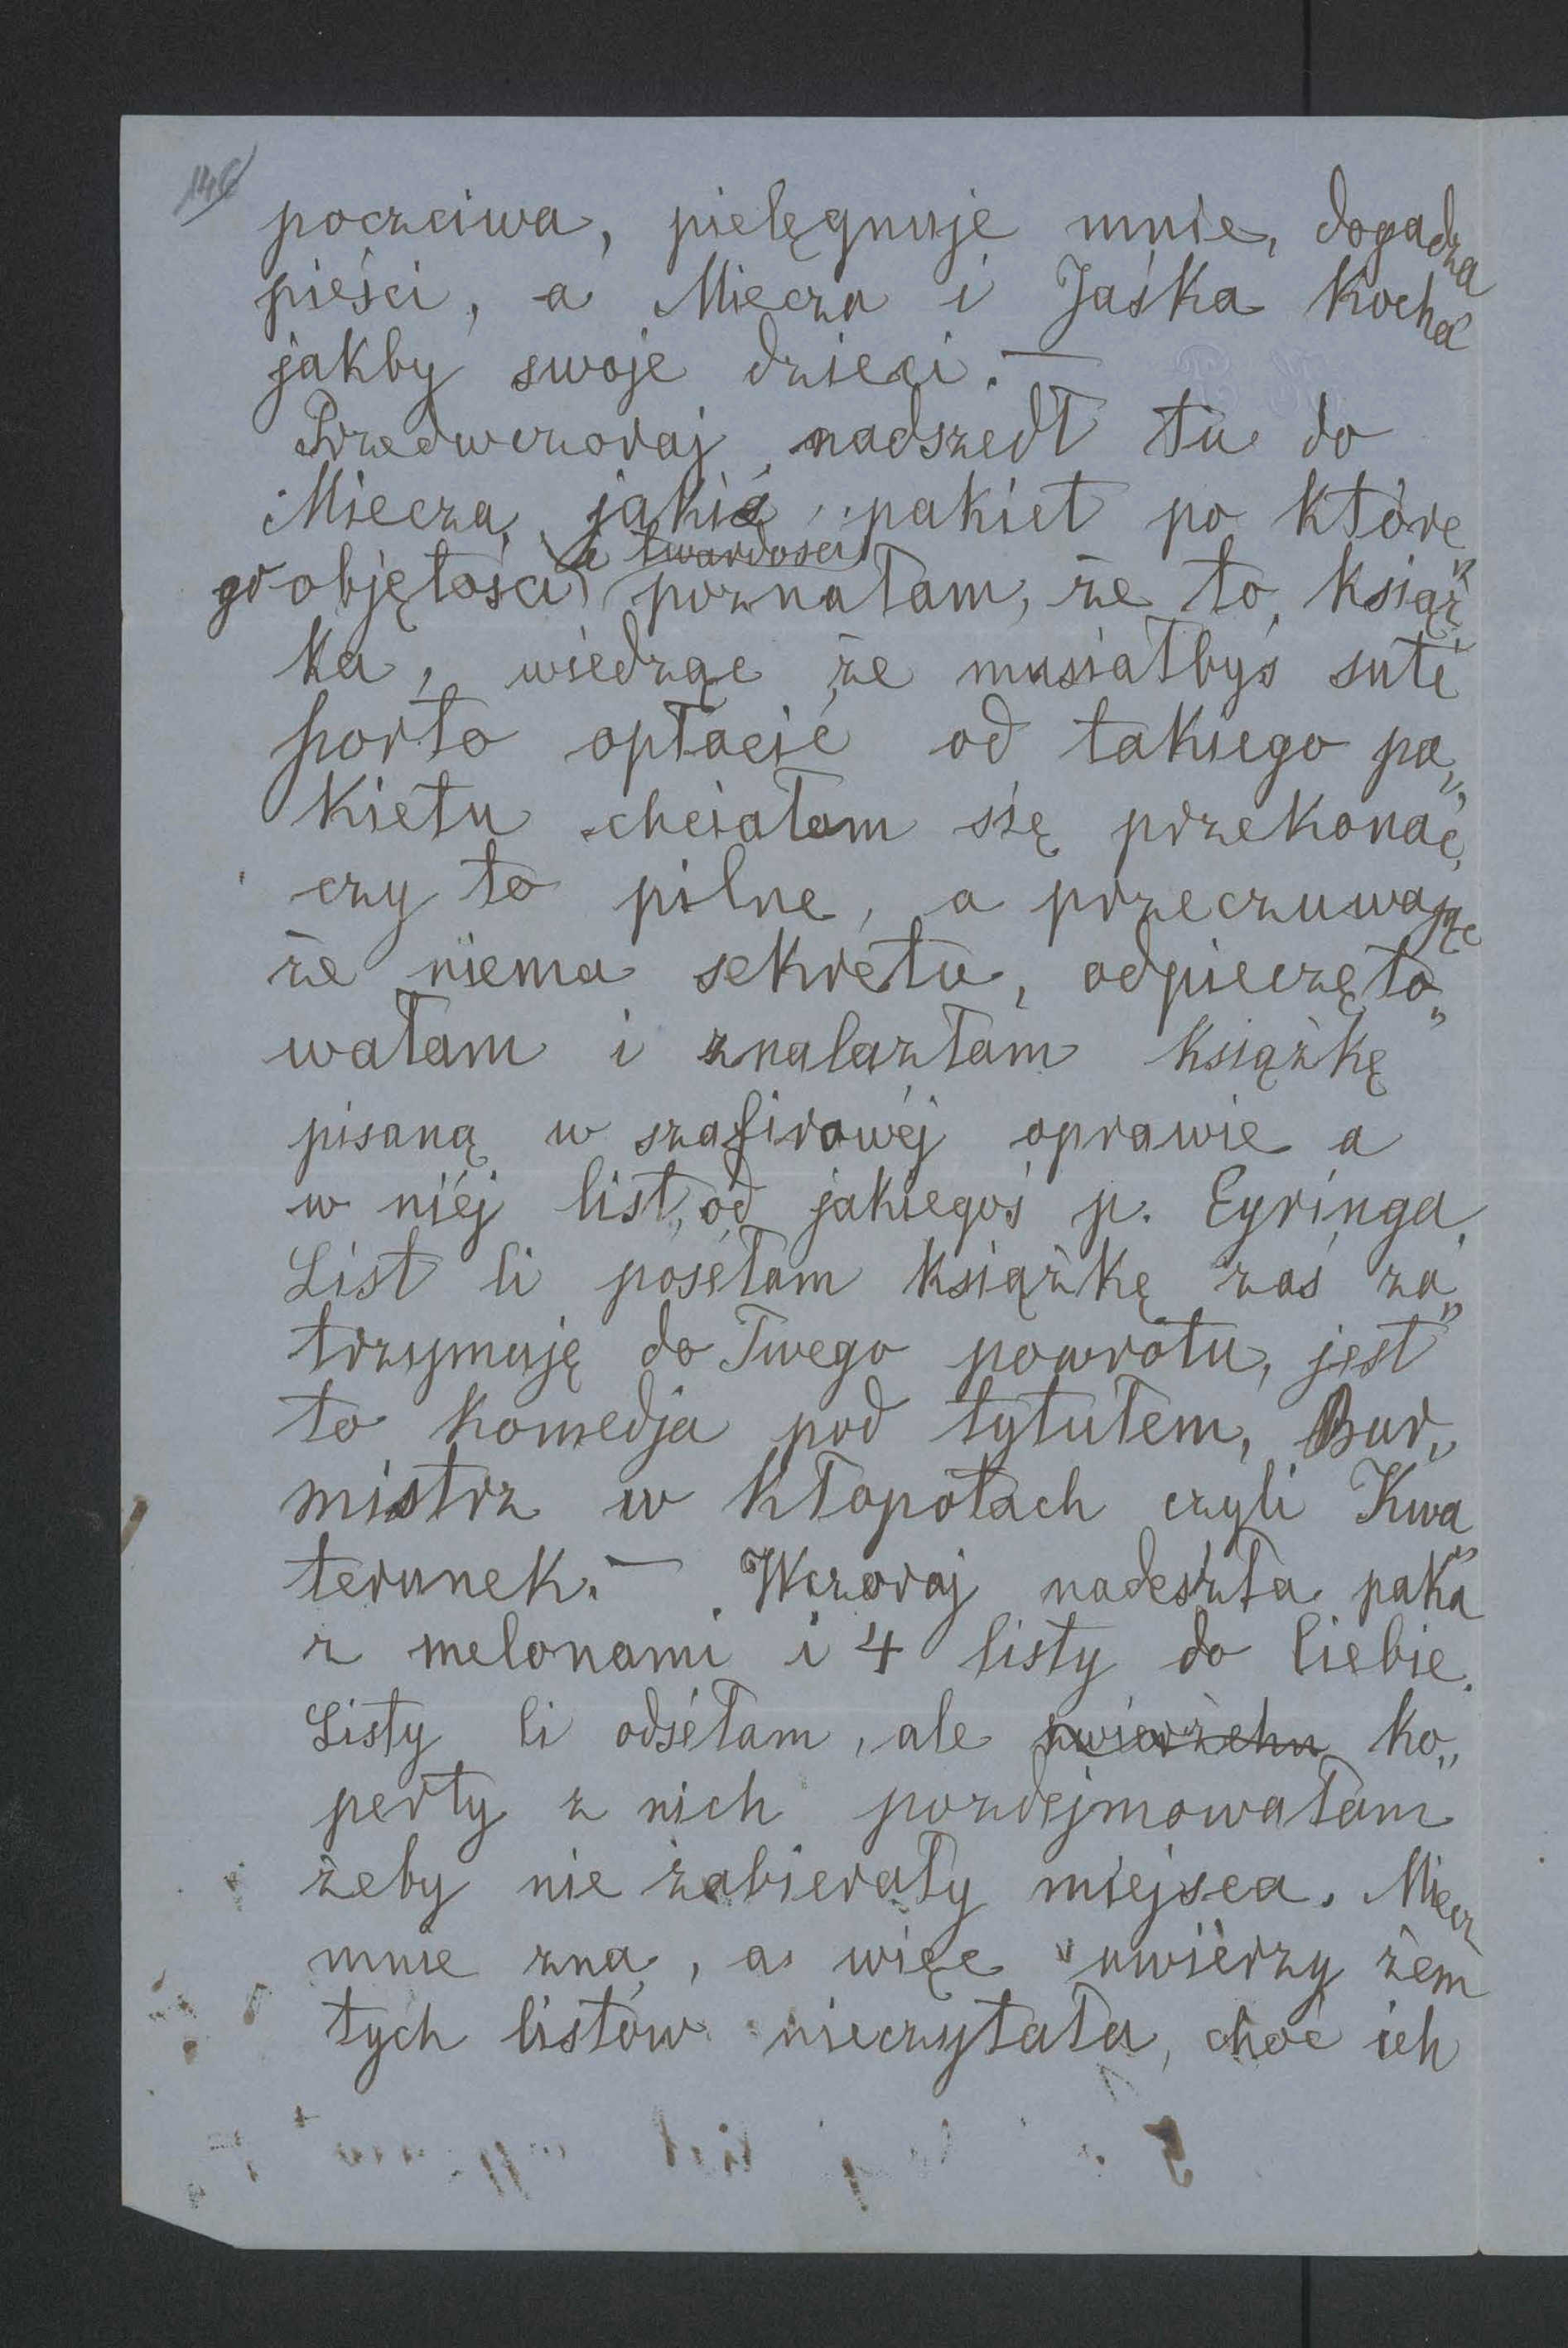 146
poczciwa, pielęgnuje mnie, dogadza
pieści, a Miecza i Jaśka kocha
jakby swoje dzieci. —
Przedwczoraj nadszedł tu do
Miecza, jakiś pakiet po które
i twardości
go objętości poznałam, że to książ„
ka, wiedząc że musiałbyś sute
porto opłacić od takiego pa„
kietu chciałam się przekonać,
czy to pilne, a przeczuwając
że niema sekretu, odpieczęto„
wałam i znalazłam książkę
pisaną w szafirowéj oprawie a
w niéj list, od jakiegoś p. Eyringa.
List Ci poséłam książkę zaś za„
trzymuję do Twego powrotu, jest
to komedja pod tytułem, Bur„
mistrz w kłopotach czyli Kwa„
terunek. — Wczoraj nadeszła paka
z melonami i 4 listy do Ciebie.
Listy Ci odséłam, ale zwierzchu ko„
perty z nich pozdejmowałam
żeby nie zabierały miejsca. Miecz
mnie zna, a więc uwierzy żem
tych listów nieczytała, choć ich